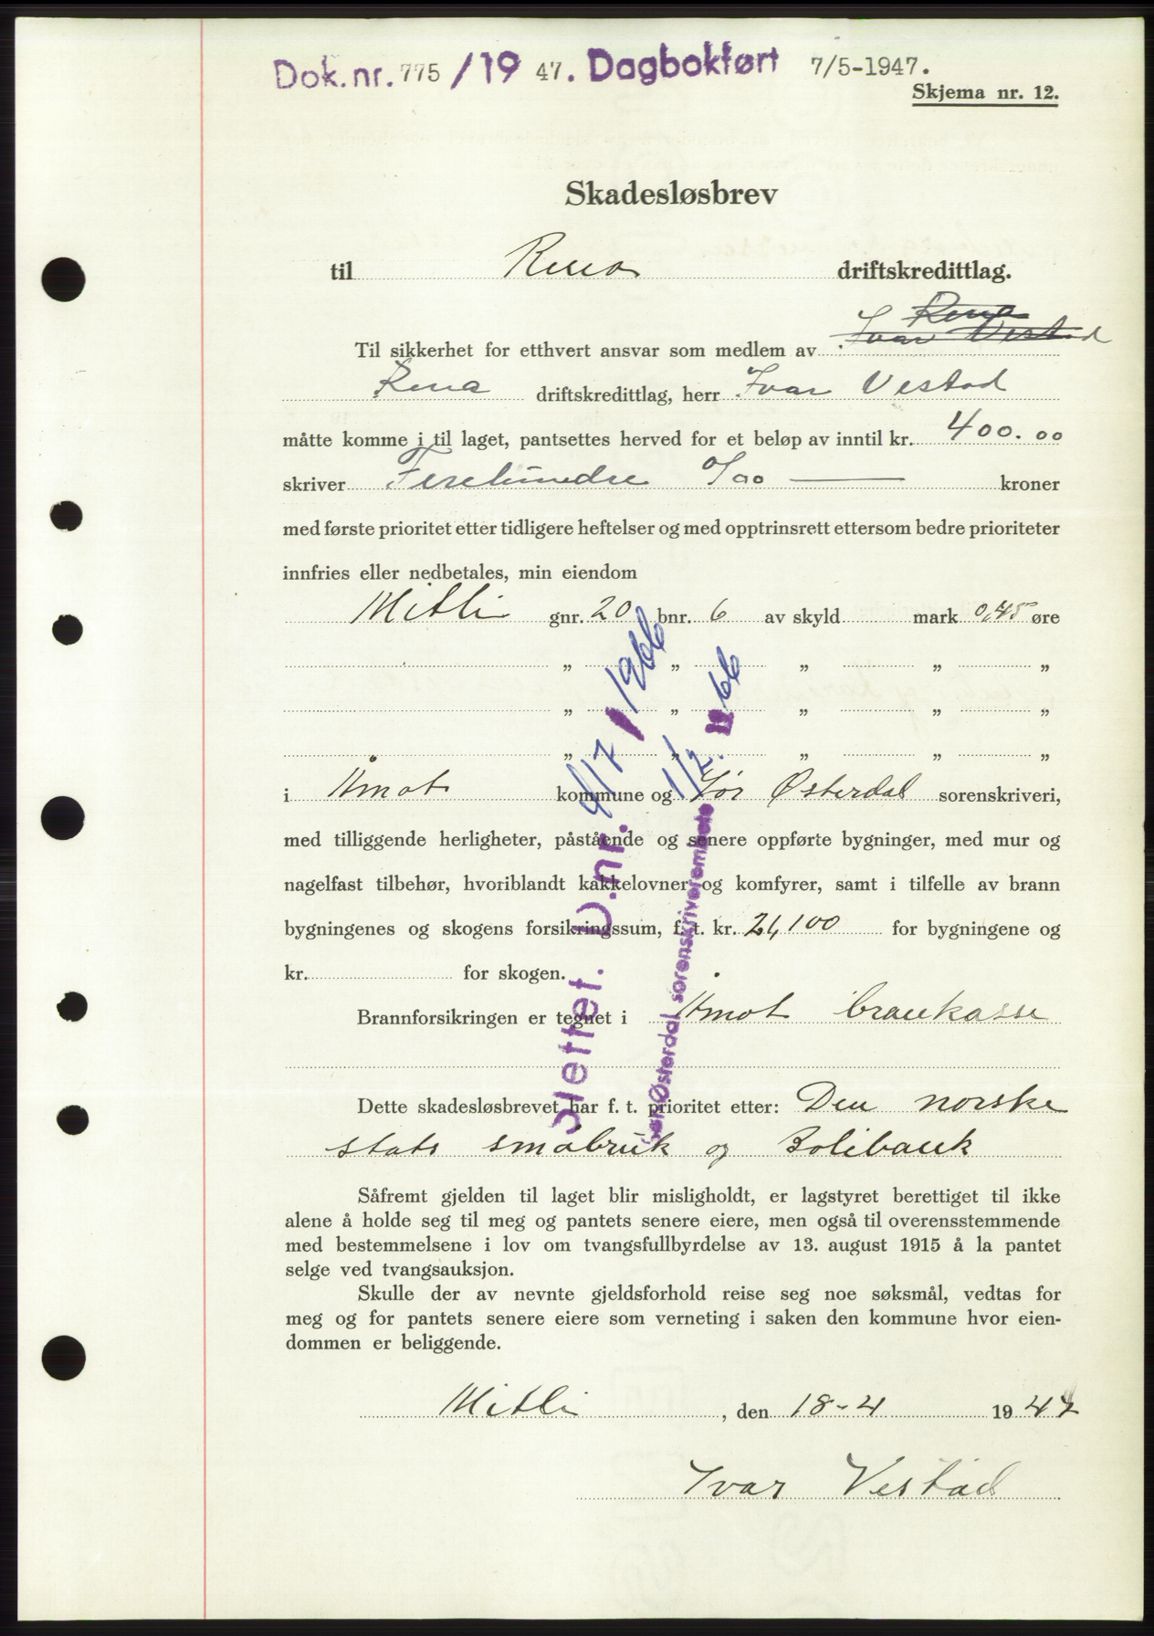 Dok.nr. 775 /19 47. Dagbokført 7/5-1947.
Skjema nr. 12.
Skadesløsbrev
til Rena driftskredittlag.
Rena
Til sikkerhet for etthvert ansvar som medlem av Ivar Vestad
Rena driftskredittlag, herr Ivar Vestad
måtte komme i til laget, pantsettes herved for et beløp av inntil kr. 400.00
skriver Firehundre 0/00 — kroner
med første prioritet etter tidligere heftelser og med opptrinsrett ettersom bedre prioriteter
innfries eller nedbetales, min eiendom
Mitli gnr. 20 bnr. 6 av skyld mark 0,45 øre
„ „ „ „ „
„ „ „ „ „
„ „ „ „ „
i Åmot kommune og Sør Østerdal sorenskriveri,
med tilliggende herligheter, påstående og senere oppførte bygninger, med mur og
nagelfast tilbehør, hvoriblandt kakkelovner og komfyrer, samt i tilfelle av brann
bygningenes og skogens forsikringssum, f. t. kr. 21,100 for bygningene og
kr. for skogen.
Brannforsikringen er tegnet i Åmot brankasse
Dette skadesløsbrevet har f. t. prioritet etter: Den norske
stats småbruk og Bolibank
Såfremt gjelden til laget blir misligholdt, er lagstyret berettiget til ikke
alene å holde seg til meg og pantets senere eiere, men også til overensstemmende
med bestemmelsene i lov om tvangsfullbyrdelse av 13. august 1915 å la pantet
selge ved tvangsauksjon.
Skulle der av nevnte gjeldsforhold reise seg noe søksmål, vedtas for
meg og for pantets senere eiere som verneting i saken den kommune hvor eien-
dommen er beliggende.
Mitli, den 18-4 1947
Ivar Vestad
Slettet. D.nr. 1966
Sør-Østerdal sorenskriverembete 1/2. 66